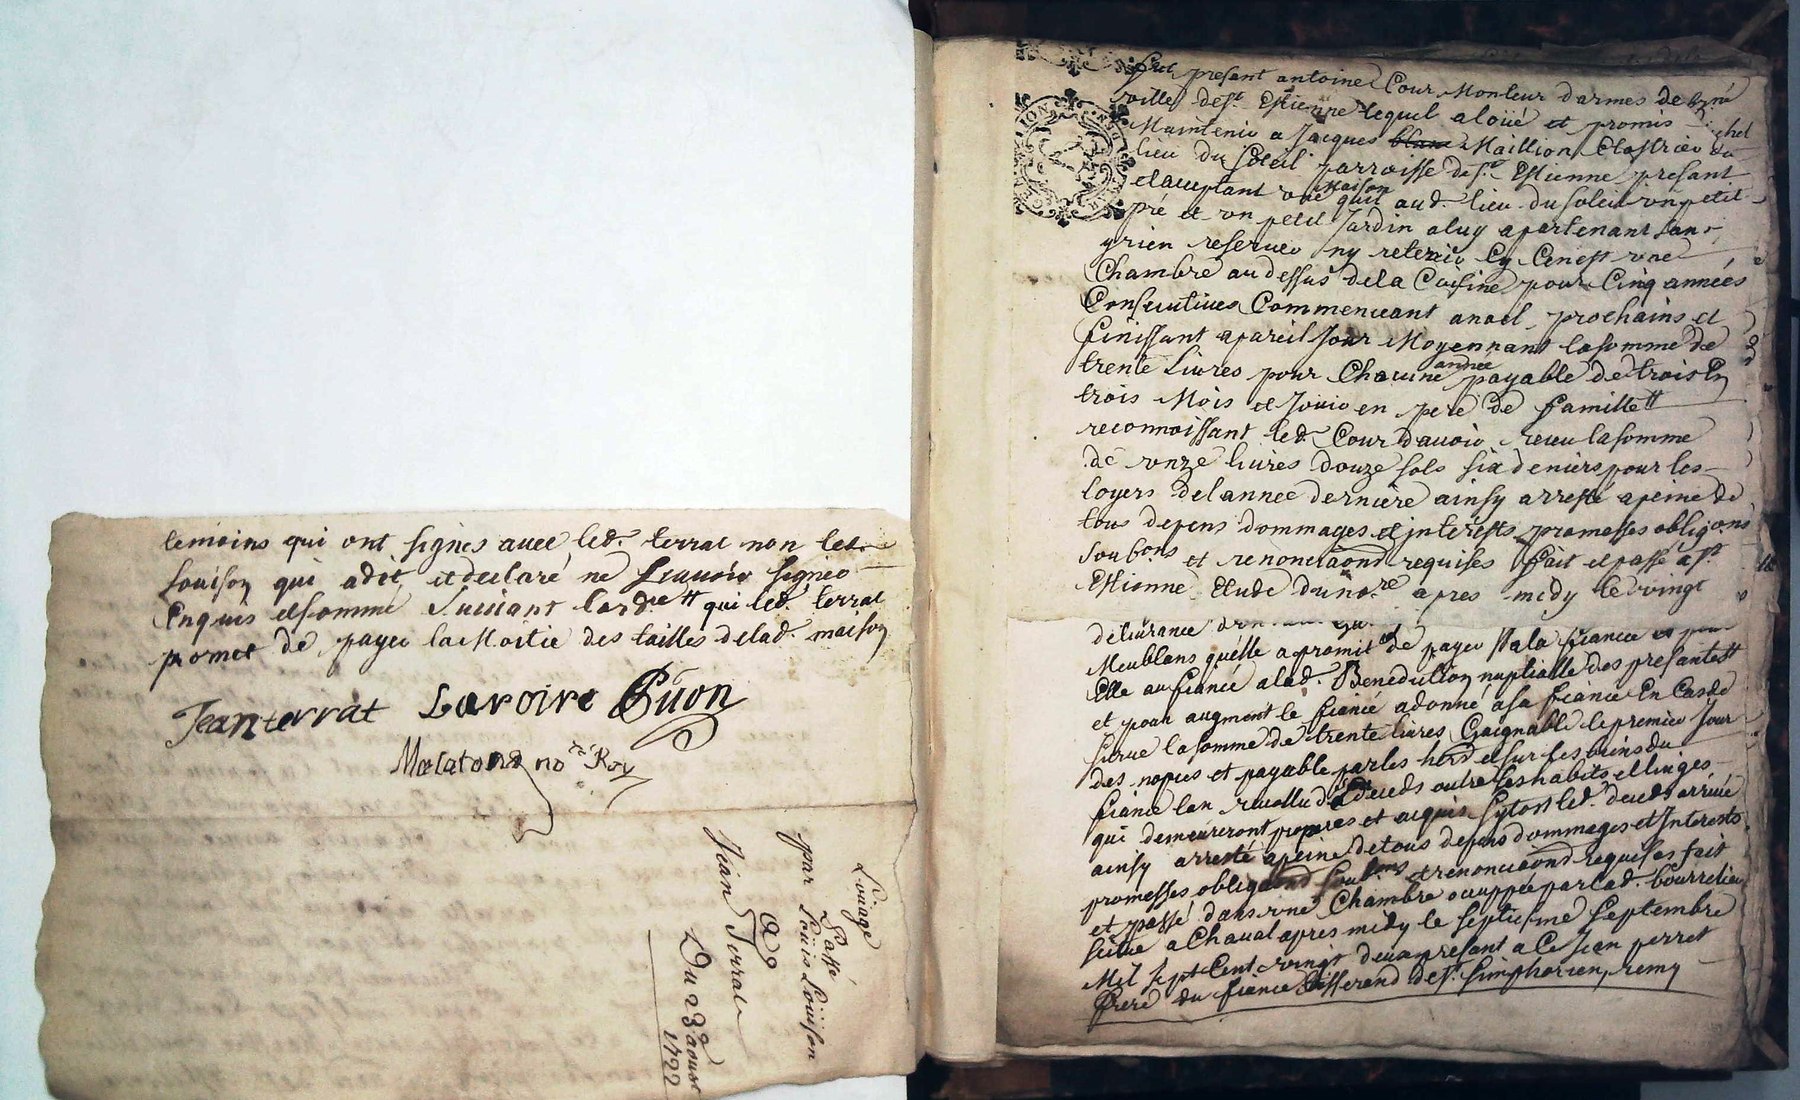 temoins qui ont signes avec led. terrat non led.
Louison qui adit et declaré ne scavoir signer
Enquis et sommé suivant lord.re qui led. terrat
promet de payer la Moitie des tailles delad. maison
Jean terrat Lavoire Guon
Malatond no.re Roy
Louage
Passé
par Louis Louison
a
Jean Terrat
Du 23 aoust
1722
fut present antoine Cour Monteur darmes de
ville de St. Estienne lequel a loüé et promis
Maintenir a Jacques Maillion Clastrier du
lieu du Soleil parroisse de St. Estienne present
et acceptant une Maison quil a aud. lieu du soleil un petit
pré et un petit Jardin aluy apartenant sans
y rien reserver ny retenir Cy Cenest une
Chambre au dessus dela Cuisine pour Cinq années
Consecutives Commencant anoel prochains et
finissant apareil Jour Moyennant lasomme de
trente Livres pour Chacune année payable de trois En
trois Mois et Jouir en pere de famille
reconnoissant led. Cour davoir receu lasomme
de onze livres douze sols six deniers pour les
loyers delannee derniere ainsy arresté apeine de
tous depens dommages et interests promesses obligons
soubons et renonciaons requises fait et passé a St.
Estienne Etude du no.re apres midy le vingt
delivrance
Meublans quélle a promit de payer
Elle aufiancé alad. Benediction nuptialle des presantes
et pour augment le fiancé adonné asa fiancée En Cas de
survie lasomme de trente livres Gaignable le premier Jour
des nopces et payable par les et sur les biens du
fiancé lan revollu deceds outre les habits et linges
qui demeureront propres et acquis sytost led. deceds arrivé
ainsy arresté apeine detous depens dommages et Interests
promesses obligaons soubons et renonciaons requises fait
et passé dans une Chambre occuppée par lad. bourrelier
scitue a Chaval apres midy le septiesme septembre
Mil sept Cent vingt deux presant a Ce Jean perret
frere du fiancé de St. Simphorien, remy